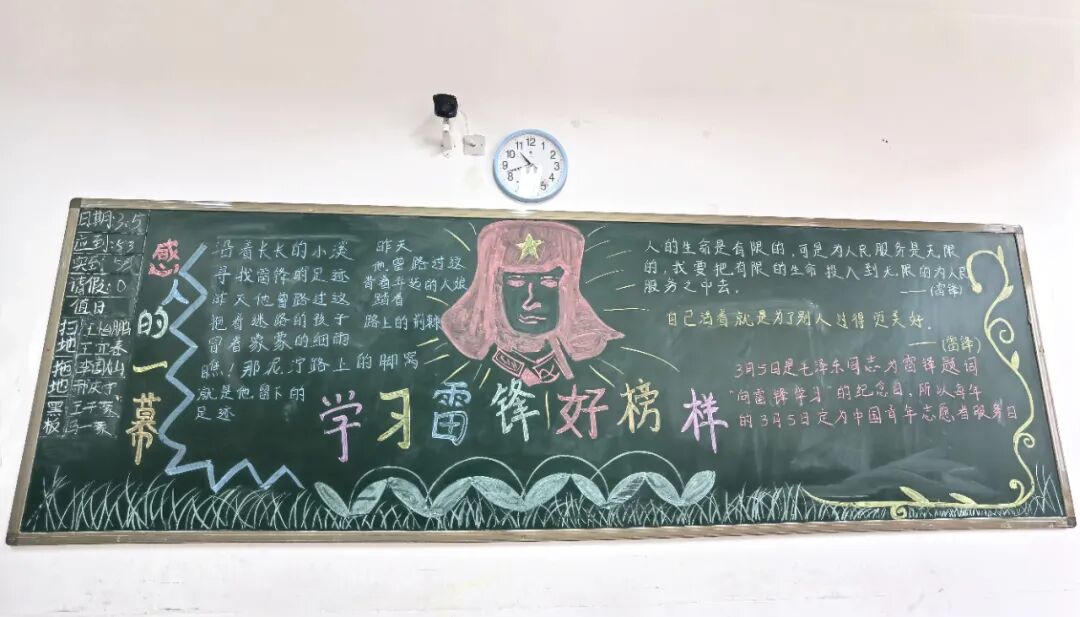 12
1
2
3
5
8
9
10
11
日期:3.5
应到:53
实到:53
请假:0
值日
扫地
拖地
黑板
感人的一幕
沿着长长的小溪
寻找雷锋的足迹
昨天他曾路过这
抱着迷路的孩子
冒着蒙蒙的细雨
瞧！那泥泞路上的脚窝
就是他留下的
足迹
昨天
他曾路过这
背着年迈的人娘
踏着
路上的荆棘
学习雷锋好榜样
人的生命是有限的,可是为人民服务是无限
的,我要把有限的生命投入到无限的为人民
服务之中去.
——(雷锋)
自己活着就是为了别人过得更美好.
——(雷锋)
3月5日是毛泽东同志为雷锋题词
"向雷锋学习"的纪念日,所以每年
的3月5日定为中国青年志愿者服务日